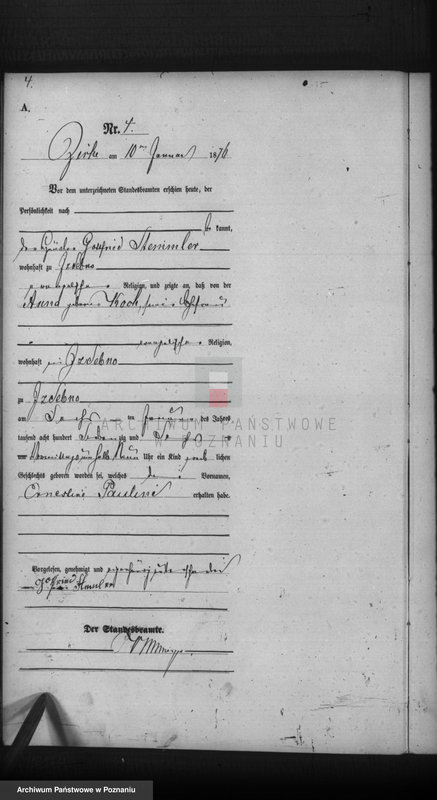 4.
A.
Nr. 4.
Zirke am 10ten Januar 1876
Vor dem unterzeichneten Standesbeamten erschien heute, der
Persönlichkeit nach
be kannt,
Gottfried Stemmler
wohnhaft zu Izdebno
evangelischer Religion, und zeigte an, daß von der
geborene Koch, seiner Ehefrau
evangelischer Religion,
wohnhaft Izdebno
zu Izdebno
am Sechsten Januar des Jahres
tausend acht hundert siebenzig und sechs
Vormittags um halb Neun Uhr ein Kind weib lichen
Geschlechts geboren worden sei, welches die Vornamen,
Ernestine Pauline erhalten habe.
Vorgelesen, genehmigt und
Gottfried Stemmler
Der Standesbeamte.
ARCHIWUM PAŃSTWOWE
W POZNANIU
Archiwum Państwowe w Poznaniu